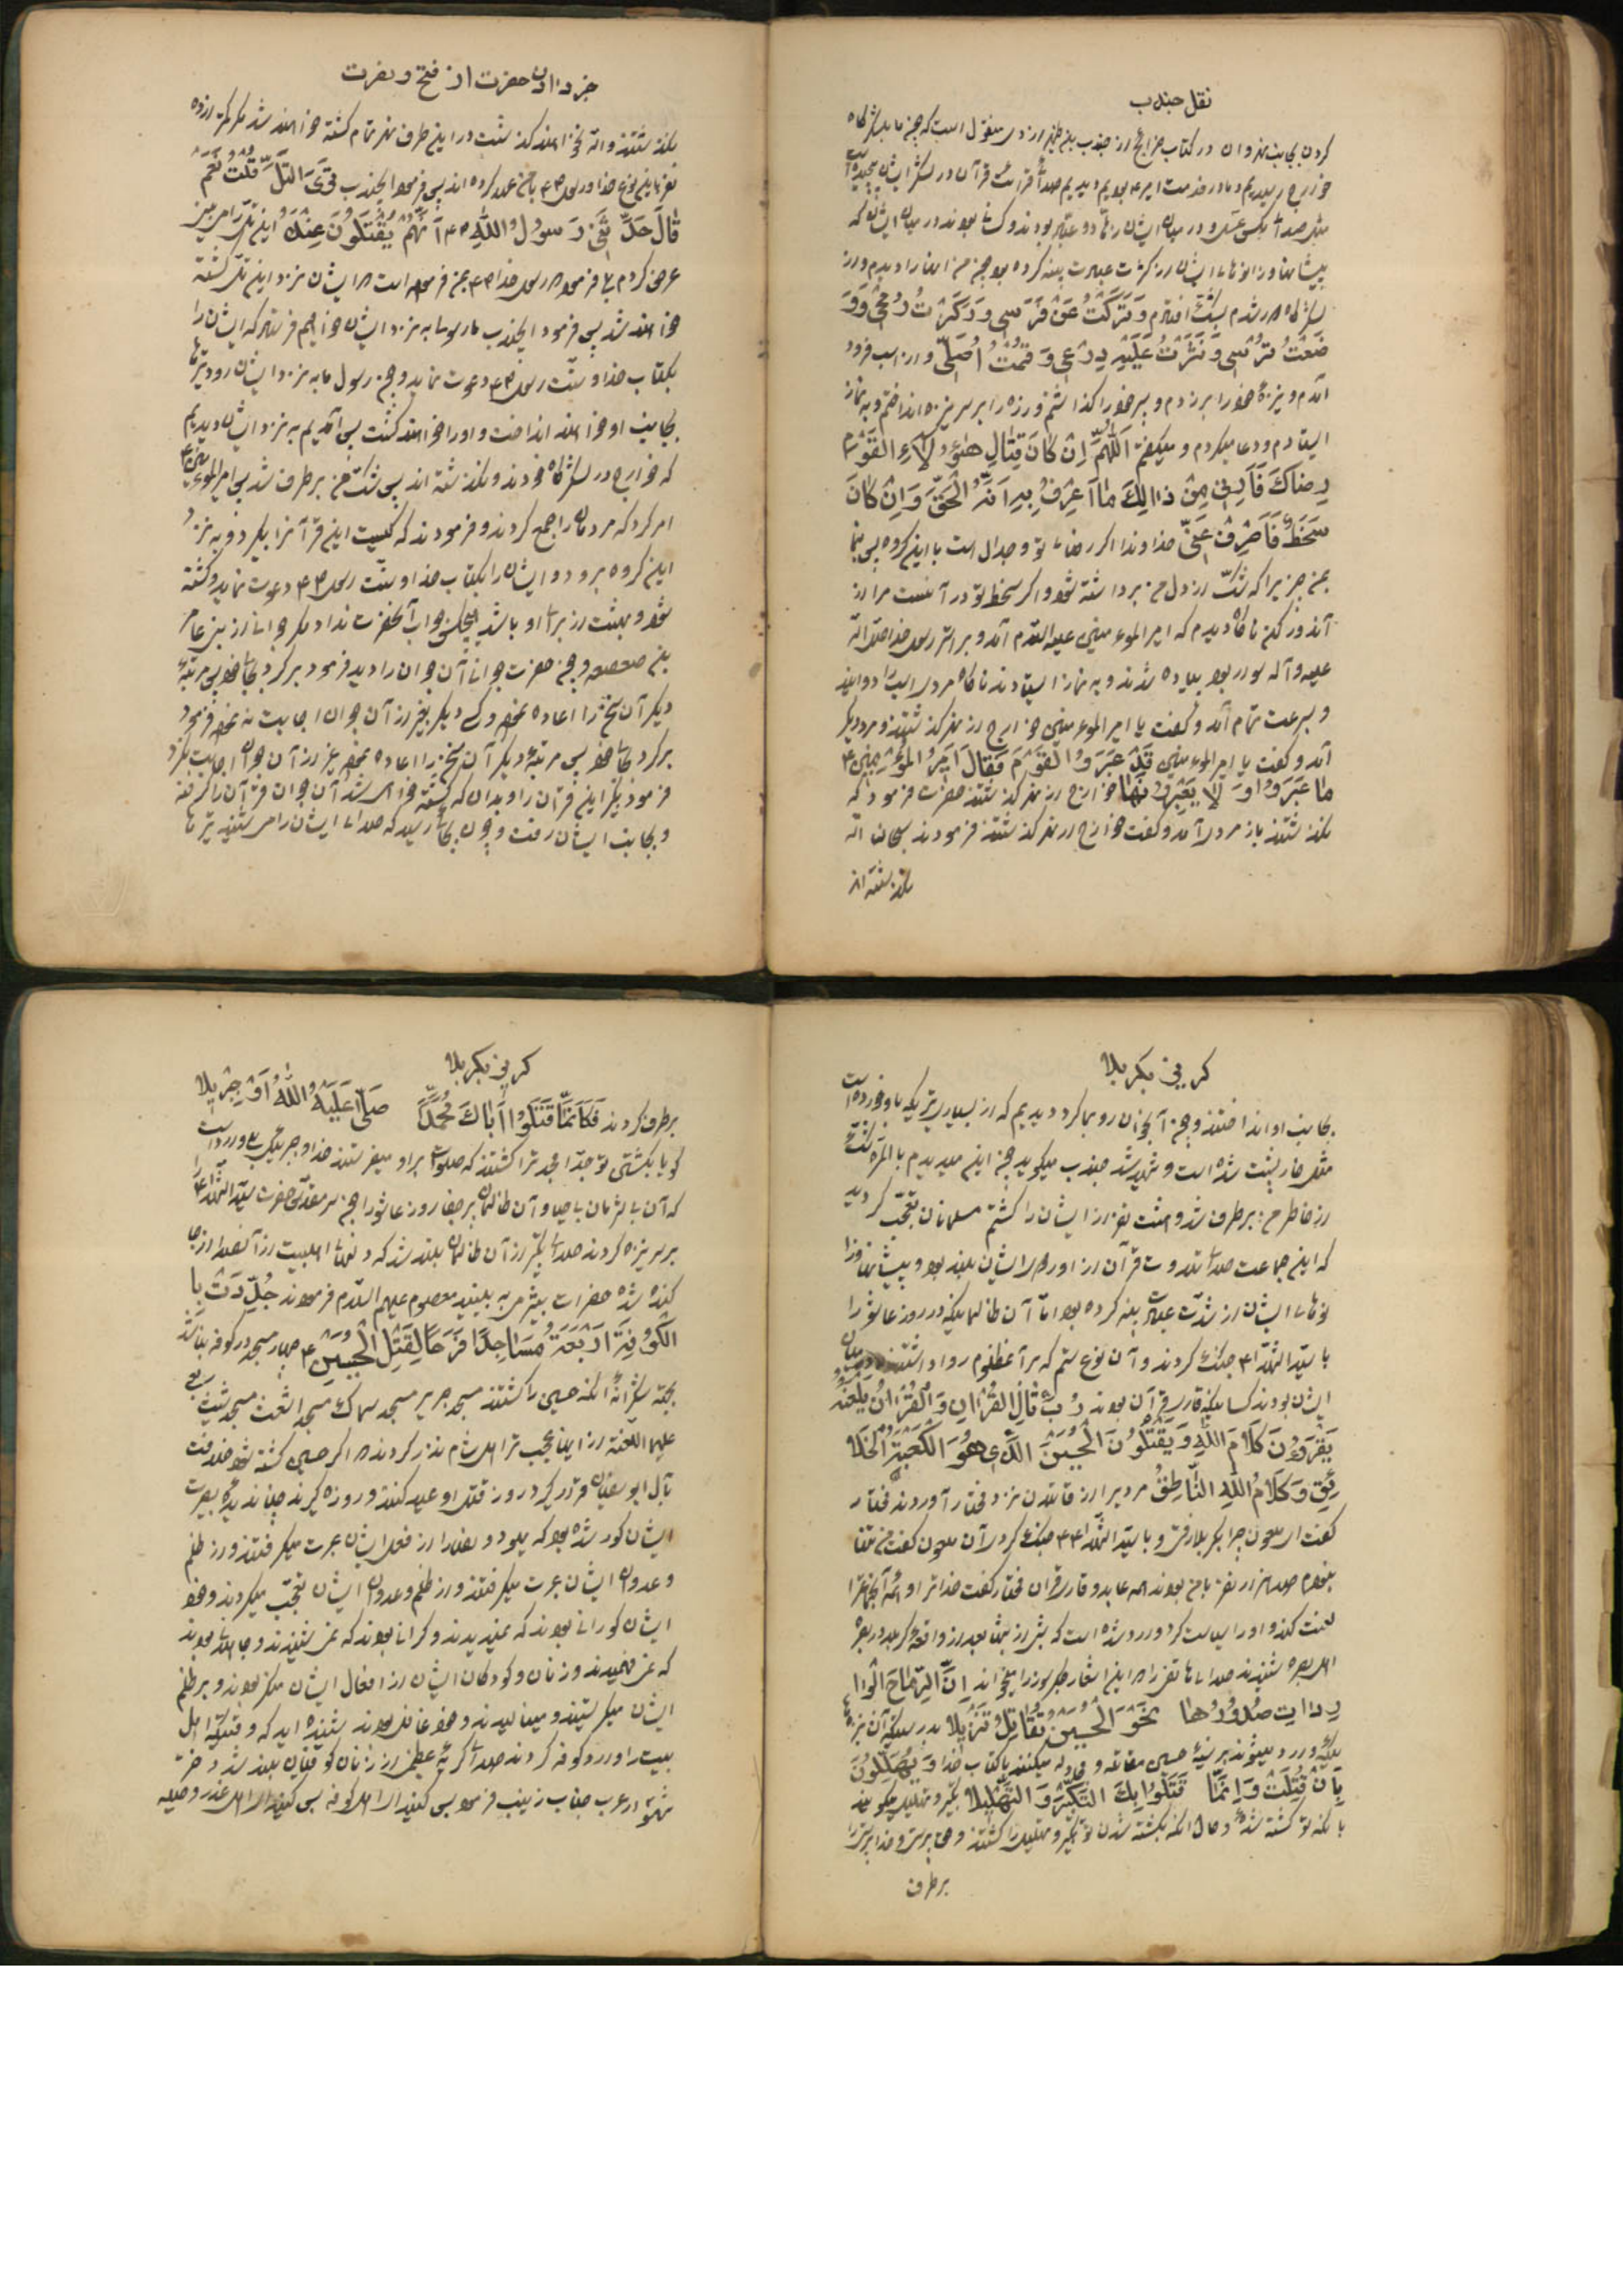 نقل جندب
کردن بجانب نهروان در کتاب خرایج از جندب بن زهیر ازدی منقول است که چون ما بلشکرگاه
خوارج رسیدیم و ما در خدمت امیر ع بودیم دیدیم صدای قرائت قرآن در لشکر ایشان پیچیده است
مثل صدای مکس عسل و در میان ایشان زهاد و عباد بودند و کسانی بودند در میان ایشان که
پیشانیها و زانوهای ایشان از کثرت عبادت پینه کرده بود چون من اینها را دیدم و از
لشکرگاه دور شدم بشک افتادم وَنَزَلْتُ عَنْ فَرَسی وَرَکَزْتُ رُمْحی وَوَ
ضَعْتُ تُرْسی وَنَثَرْتُ عَلَیْهِ دِرْعی وَقُمْتُ اُصَلّی و از اسب فرود
آمدم و نیزهٔ خود را بر زدم و سپر خود را گذاشتم و زره را بر سر نیزه انداختم و به نماز
ایستادم و دعا میکردم و میگفتم اَللّهُمَّ اِنْ کانَ قِتالِ هؤُلاءِ الْقَوْمِ
رِضاکَ فَاَرِنی مِنْ ذالِکَ ما اَعْرِفُ بِهِ اَنَّهُ الْحَقَّ وَاِنْ کانَ
سَخَطٌ فَاَصْرِفْ عَنّی خداوندا اگر رضای تو در جدال است با این کروه پس بنما
بمن چیزیرا که شک از دل من برداشته شود و اگر سخط تو در آنست مرا از
آن دور کن ناگاه دیدم که امیرالمومنین علیه السلام آمد و بر استر رسول خدا صلی الله
علیه و آله سوار بود پیاده شدند و به نماز ایستادند ناگاه مردی اسب دوانید
و بسرعت تمام آمد و گفت یا امیرالمومنین خوارج از نهر گذشتند و مرد دیگر
آمد و گفت یا امیرالمومنین قَدْ عَبَرَوُا الْقَوْمُ فَقالَ اَمیرُ الْمُؤْمِنینَ ع
ما عَبَرَوُا وَ لا یَعْبُرُونَها خوارج از نهر گذشتند حضرت فرمود که
نگذشتند باز مردی آمد و گفت خوارج از نهر گذشتند فرمودند سبحان الله
نگذشته اند
خبر دادن حضرت از فتح و نصرت
نگذشتند و الله نخواهند گذشت در این طرف نهر تمام کشته خواهند شد مگر کمتر از ده
نفر این نوع خدا و رسول ص با من عهد کرده اند پس فرمود ایجندب تَرَی التَّلَّ قُلْتُ نَعَمْ
قالَ حَدَّثَنی رَسُولُ اللهِ ص اَنَّهُمْ یُقْتَلُونَ عِنْدَهُ این تل را می بینی
عرض کردم بلی فرمود رسول خدا ص بمن فرموده است که ایشان نزد این تل کشته
خواهند شد پس فرمود ایجندب ما رسولی به نزد ایشان خواهیم فرستاد که ایشان را
بکتاب خدا و سنت رسول ص دعوت نماید و چون رسول ما به نزد ایشان رود تیرها
بجانب او خواهند انداخت و او را خواهند کشت پس آمدیم به نزد ایشان دیدیم
که خوارج در لشکرگاه خودند و نگذشته اند پس شک من بر طرف شد پس امیرالمومنین ع
امر کرد که مردمان را جمع کردند و فرمودند که کیست این قرآنرا بگیرد و به نزد
این گروه برود و ایشان را بکتاب خدا و سنت رسول ص دعوت نماید و کشته
شود و بهشت از برای او باشد هیچکس جواب آنحضرت نداد مگر جوانی از بنی عامر
بن صعصعه و چون حضرت جوانی آن جوان را دید فرمود برگرد بجای خود پس مرتبهٔ
دیگر آن سخن را اعاده نمود و کسی دیگر بغیر از آن جوان اجابت ننمود فرمود
برگرد بجای خود پس مرتبهٔ دیگر آن سخن را اعاده نمود غیر از آن جوان اجابت نکرد
فرمود بگیر این قرآن را و بدان که کشته خواهی شد آن جوان قرآن را گرفته
و بجانب ایشان رفت و چون بجائی رسید که صدای ایشان را می شنید تیرها
کریز بکربلا
بجانب او انداختند و چون آنجوان رو بما کرد دیدیم که از بسیاری تیریکه باو خورده است
مثل خارپشت شده است و شهید شد جندب میگوید چون این میدیدم بالمره شک
از خاطر من بر طرف شد و هشت نفر از ایشان را کشتم مسلمانان تعجب کردید
که این جماعت صدای تلاوت قرآن از اردوی ایشان بلند بود و پیشانیها و زا
نوهای ایشان از شدت عبادت پینه کرده بود اما آن ظالمانیکه در روز عاشورا
با سیدالشهدا ع جنگ کردند و آن نوع ستم که بر آن مظلوم روا داشتند در میان
ایشان بودند کسانیکه قاری قرآن بودند رُبَّ تالِ الْقُرْانِ وَالْقُرْانُ یَلْعَنُهُ
یَقْرَؤُنَ کَلامَ اللهِ وَیَقْتُلُونَ الْحُسَیْنَ الَّذی هُوَ الْکَعْبَةُ الْخَلا
ئِقِ وَکَلامُ اللهِ النّاطِقُ مردیرا از قاتلان نزد مختار آوردند مختار
گفت ای ملعون چرا بکربلا رفتی و با سیدالشهدا ع جنگ کردی آن ملعون گفت من تنها
نبودم صد هزار نفر با من بودند همه عابد و قاری قرآن مختار گفت خدا ترا و همهٔ آنجماعترا
لعنت کند و او را سیاست کرد و وارد شده است که بیش از شما بعد از واقعهٔ کربلا در بصره
اهل بصره شنیدند صدای هاتفی را که این اشعار جگرسوز را میخواند اِنَّ الرِّماحَ الْوا
رِدات صُدُورُها نَحْوَ الْحُسَیْنِ تُقاتِلُ تَنْزیلا بدرستیکه آن نیزه
هائیکه وارد میشوند بر سینهٔ حسین مقاتله و مجادله میکنند با کتاب خدا وَیُهَلِّلُونَ
بِاَنْ قُتِلْتَ وَاِنَّما قَتَلُوا بِکَ التَّکْبیرَ وَالتَّهْلیلا تکبیر و تهلیل میگویند
بآنکه تو کشته شدهٔ و حال آنکه بکشته شدن تو تکبیر و تهلیل را کشتند و حق پرستی و خداپرستی را
بر طرف
کریز بکربلا
بر طرف کردند فَکَاَنَّما قَتَلُوا اَباکَ مُحَمَّدًا صَلّی عَلَیْهِ اللهُ اَوْ جِبْریلا
گویا بکشتن تو جد امجد ترا کشتند که صلوات بر او میفرستند خدا و جبرئیل بلی وارد است
که آن بی ایمان بیحیا و آن ظالمان پرجفا روز عاشورا چون سر مقدس حضرت سیدالشهدا ع را
بر سر نیزه کردند صدای تکبیر از آن ظالمان بلند شد که دلهای اهلبیت از آنصدا از جا
کنده شد حضرات بیشرمی به بینید معصوم علیهم السلام فرمودند جُدِّدَتْ بِا
الْکُوفَةِ اَرْبَعَةُ مَساجِدَ فَرَحًا لِقَتْلِ الْحُسَیْنِ ع چهار مسجد در کوفه بنا شد
بجهة شکرانهٔ آنکه حسین را کشتند مسجد جریر مسجد سماک مسجد اشعث مسجد شبث ربعی
علیهم اللعنة از این عجب تر اهل شام نذر کردند که اگر حسین کشته شود خلافت
بآل ابوسفیان قرار گیرد روز قتل او عید کنند و روزه گیرند چنان دیدهٔ بصیرت
ایشان کور شده بود که یهود و نصارا از فعل ایشان عبرت میگرفتند و از ظلم
و عدوان ایشان عبرت میگرفتند و از ظلم و عدوان ایشان تعجب میکردند و خود
ایشان کورانی بودند که نمیدیدند و کرانی بودند که نمی شنیدند و جاهلانی بودند
که نمی فهمیدند و زنان و کودکان ایشان از افعال ایشان منکر بودند و بر ظلم
ایشان میگریستند و مینالیدند و خود غافل بودند شنیده اید که وقتیکه اهل
بیت را وارد کوفه کردند صدای گریهٔ عظیمی از زنان کوفیان بلند شد دختر
شهسوار عرب جناب زینب فرمود بس کنید ای اهل کوفه بس کنید ای اهل غدر و حیله